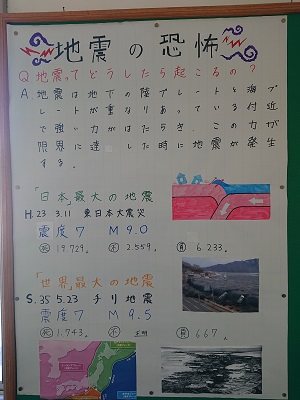 地震の恐怖
Q.地震ってどうしたら起こるの？
A.地震は地下の陸プレートと海プ
レートが重なりあっている付近
で強い力がはたらき、この力が
限界に達した時に地震が発生
する。
「日本」最大の地震
H.23 3.11 東日本大震災
震度7 M9.0
死 19.729人 不 2.559人 負 6.233人
「世界」最大の地震
S.35 5.23 チリ地震
震度7 M9.5
死 1.743人 不 不明 負 667人